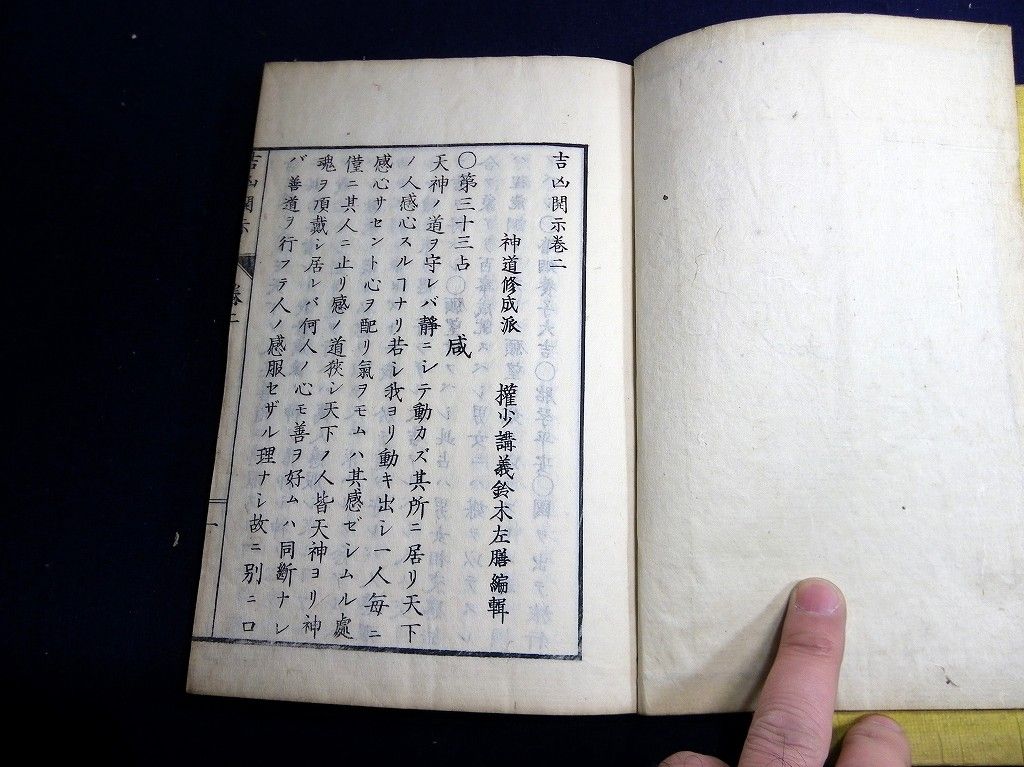 吉凶開示巻二
神道修成派 權少講義鈴木左膳編輯
〇第三十三占 咸
天神ノ道ヲ守レバ靜ニシテ動カズ其所ニ居リ天下
ノ人感心スルヿナリ若シ我ヨリ動キ出シ一人每ニ
感心サセント心ヲ配リ氣ヲモムハ其感ゼシムル處
僅ニ其人ニ止リ感ノ道狹シ天下ノ人皆天神ヨリ神
魂ヲ頂戴シ居レバ何人ノ心モ善ヲ好ムハ同斷ナレ
バ善道ヲ行フテ人ノ感服セザル理ナシ故ニ別ニロ
吉凶開示 巻二 一